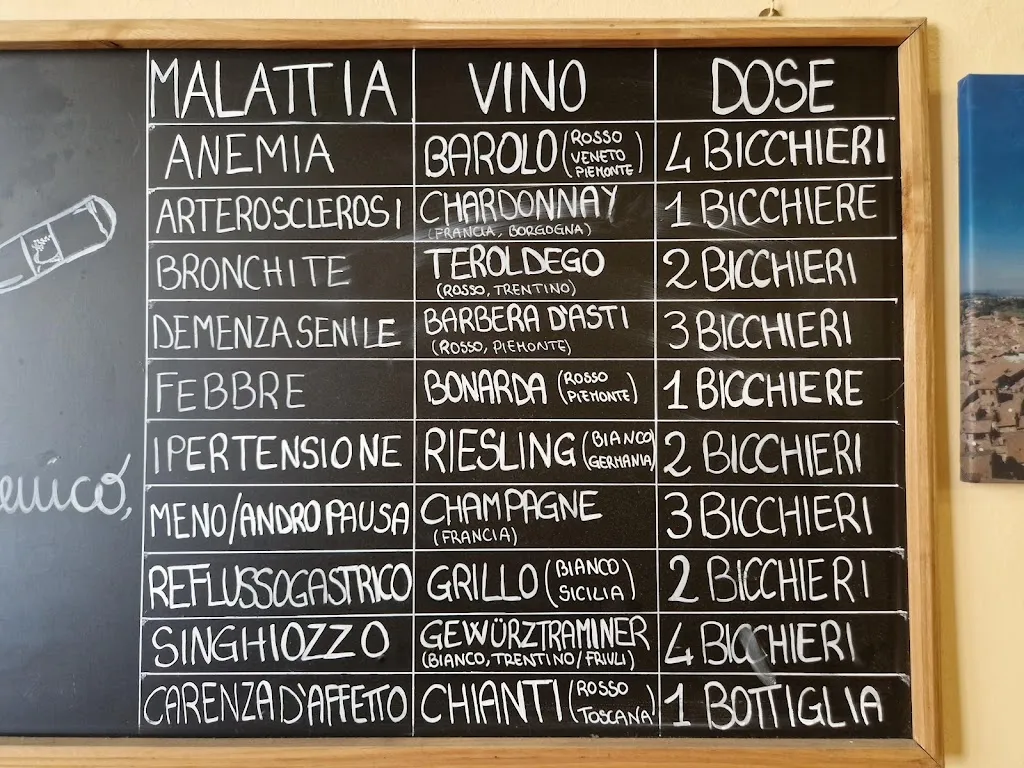 MALATTIA VINO DOSE
ANEMIA BAROLO (ROSSO VENETO PIEMONTE) 4 BICCHIERI
ARTEROSCLEROSI CHARDONNAY (FRANCIA, BORGOGNA) 1 BICCHIERE
BRONCHITE TEROLDEGO (ROSSO, TRENTINO) 2 BICCHIERI
DEMENZA SENILE BARBERA D'ASTI (ROSSO, PIEMONTE) 3 BICCHIERI
FEBBRE BONARDA (ROSSO PIEMONTE) 1 BICCHIERE
IPERTENSIONE RIESLING (BIANCO GERMANIA) 2 BICCHIERI
MENO/ANDROPAUSA CHAMPAGNE (FRANCIA) 3 BICCHIERI
REFLUSSOGASTRICO GRILLO (BIANCO SICILIA) 2 BICCHIERI
SINGHIOZZO GEWÜRZTRAMINER (BIANCO, TRENTINO/FRIULI) 4 BICCHIERI
CARENZA D'AFFETTO CHIANTI (ROSSO TOSCANA) 1 BOTTIGLIA